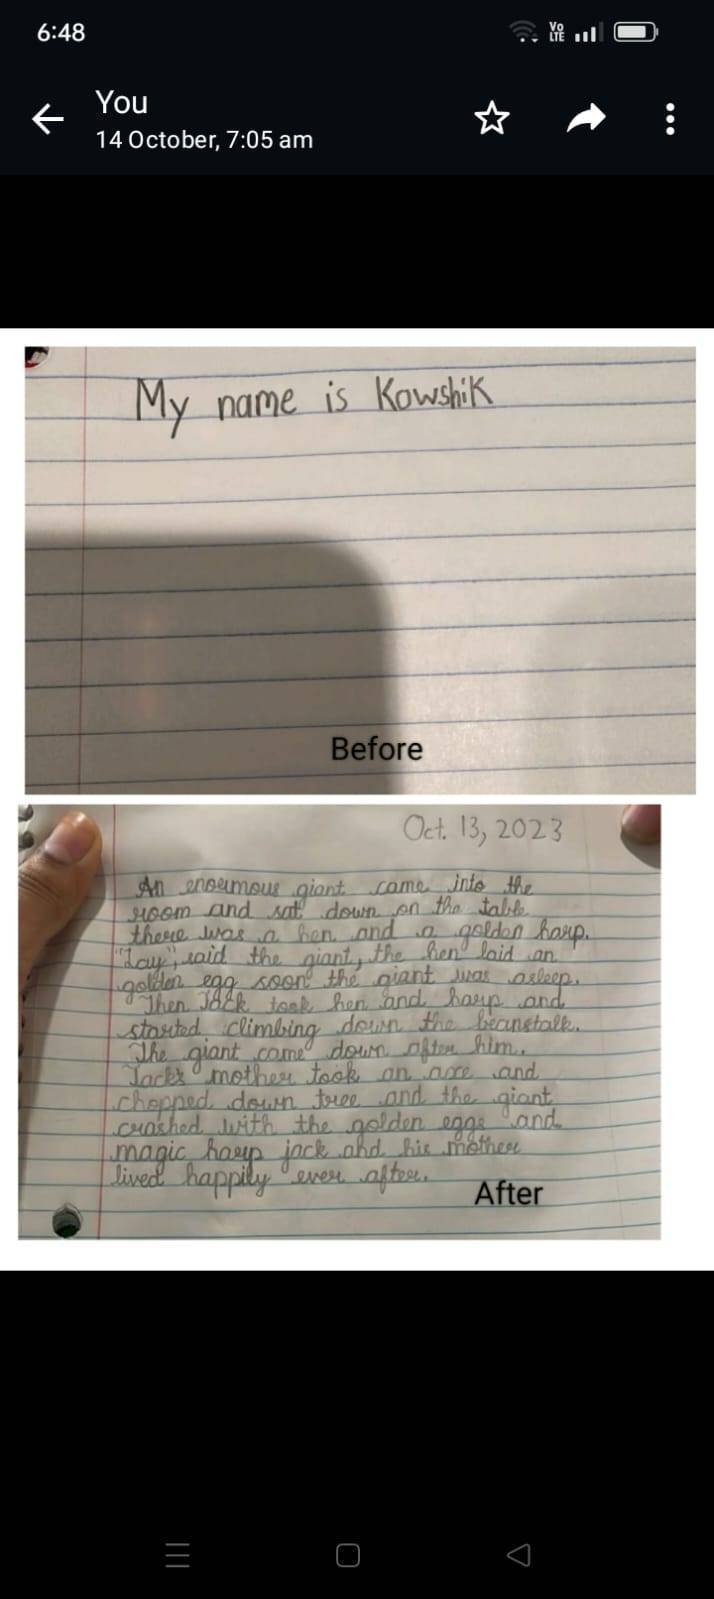 6:48
Vo LTE
You
14 October, 7:05 am
My name is Kowshik
Before
Oct. 13, 2023
An enormous giant came into the
room and sat down on the table
there was a hen and a golden harp.
"Lay", said the giant, the hen laid an
golden egg soon the giant was asleep.
Then Jack took hen and harp and
started climbing down the beanstalk.
The giant came down after him.
Jacks mother took an axe and
chopped down tree and the giant
crashed with the golden eggs and
magic harp jack and his mother
lived happily ever after.
After